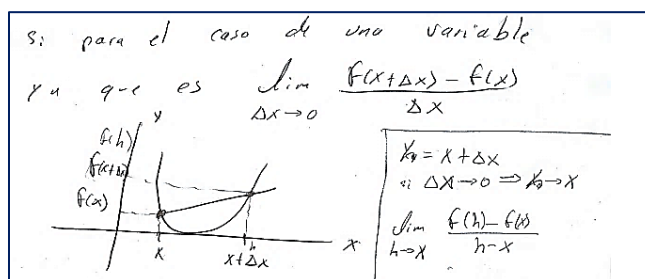 Si para el caso de una variable
ya que es lim f(x+Δx) - f(x)
Δx→0 Δx
y
f(h)
f(x+Δx)
f(x)
x
h
x+Δx
x
h = x + Δx
si Δx→0 ⇒ h→x
lim f(h) - f(x)
h→x h-x